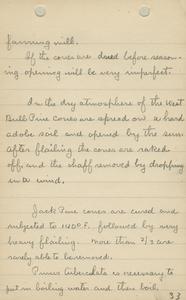 fanning mill.
If the cones are dried before reason-
ing opening will be very imperfect.
In the dry atmosphere of the West
Bull Pine Cones are spread on a hard
adobe soil and opened by the sun
after flailing the cones are raked
off and the chaff removed by dropping
in a wind.
Jack Pine cones are cured and
subjected to 140° F. followed by very
heavy flailing. More than 2/3 are
rarely able to be removed.
Pinus Tuberculata is necessary to
put in boiling water and then boil.
33